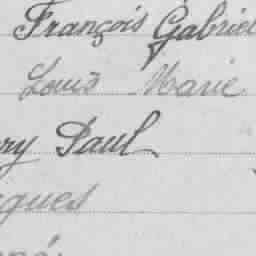 François Gabriel
Louis Marie
ry Paul
ques